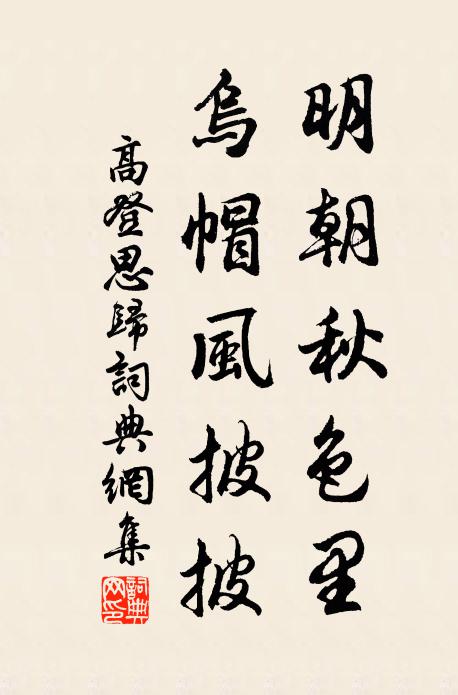 明朝秋色里
烏帽風披披
高登思歸詞典網集
詞典网印